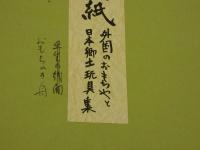 紙
外国のおもちゃと
日本郷土玩具集
おもちゃの舟